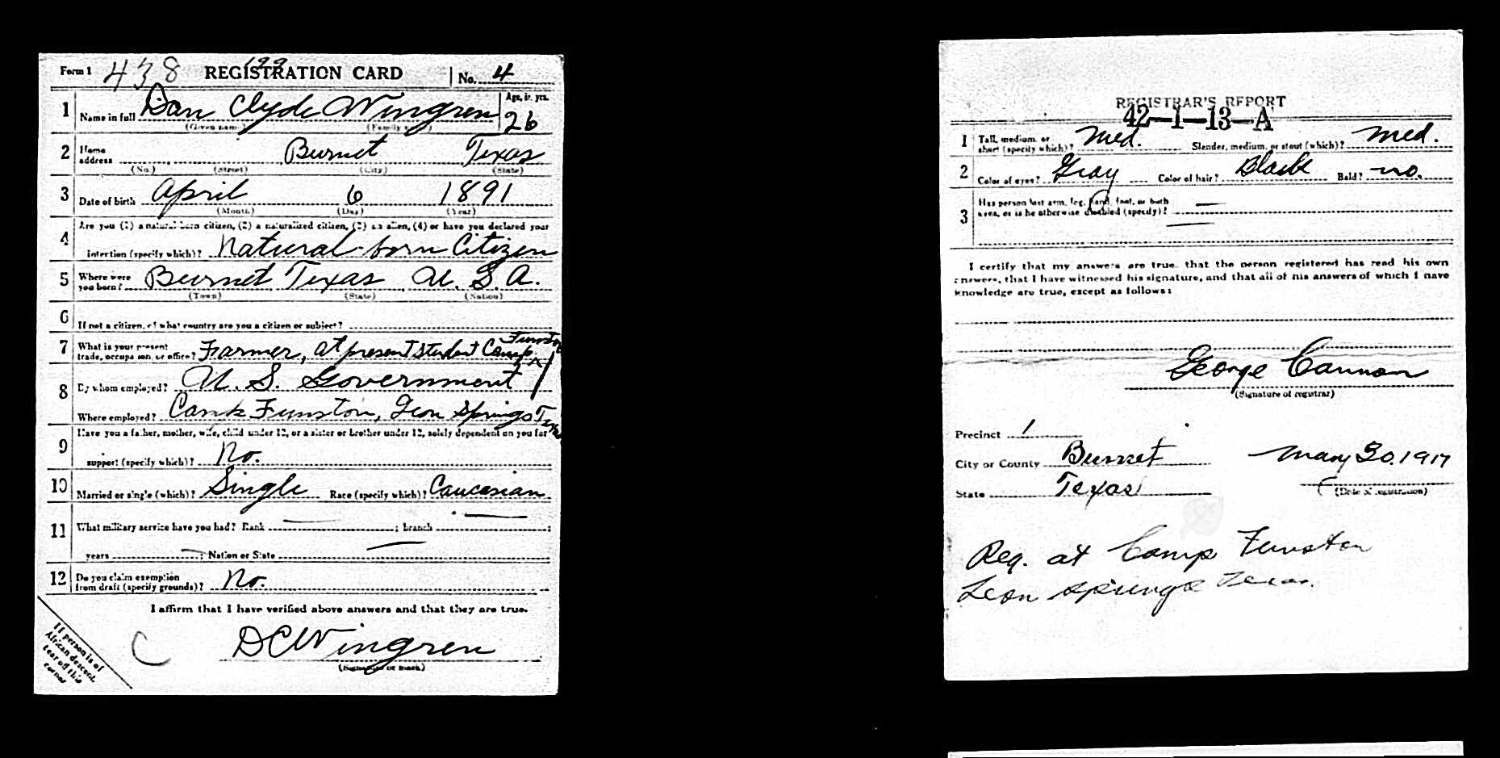 Form 1 438 REGISTRATION CARD No. 4
1 Name in full Dan Clyde Wingren Age, in yrs. 26
(Given name) (Family name)
2 Home address Burnet Texas
(No.) (Street) (City) (State)
3 Date of birth April 6 1891
(Month) (Day) (Year)
4 Are you (1) a natural-born citizen, (2) a naturalized citizen, (3) an alien, (4) or have you declared your
intention (specify which)? Natural-born Citizen
5 Where were you born? Burnet Texas U. S. A.
(Town) (State) (Nation)
6 If not a citizen, of what country are you a citizen or subject?
7 What is your present trade, occupation, or office? Farmer, at present student Camp Funston
8 By whom employed? U. S. Government
Where employed? Camp Funston, Leon Springs Texas
9 Have you a father, mother, wife, child under 12, or a sister or brother under 12, solely dependent on you for
support (specify which)? No.
10 Married or single (which)? Single Race (specify which)? Caucasian
11 What military service have you had? Rank — ; branch — ;
years — ; Nation or State —
12 Do you claim exemption from draft (specify grounds)? No.
I affirm that I have verified above answers and that they are true.
C D C Wingren
(Signature or mark)
If person is of
African descent,
tear off this
corner
REGISTRAR'S REPORT
42-1-13-A
1 Tall, medium, or short (specify which)? Med. Slender, medium, or stout (which)? Med.
2 Color of eyes? Gray Color of hair? Black Bald? no.
3 Has person lost arm, leg, hand, foot, or both
eyes, or is he otherwise disabled (specify)? —
I certify that my answers are true, that the person registered has read his own
answers, that I have witnessed his signature, and that all of his answers of which I have
knowledge are true, except as follows:
George Cannon
(Signature of registrar)
Precinct 1
City or County Burnet May 30, 1917
State Texas (Date of registration)
Reg. at Camp Funston
Leon Springs Texas.